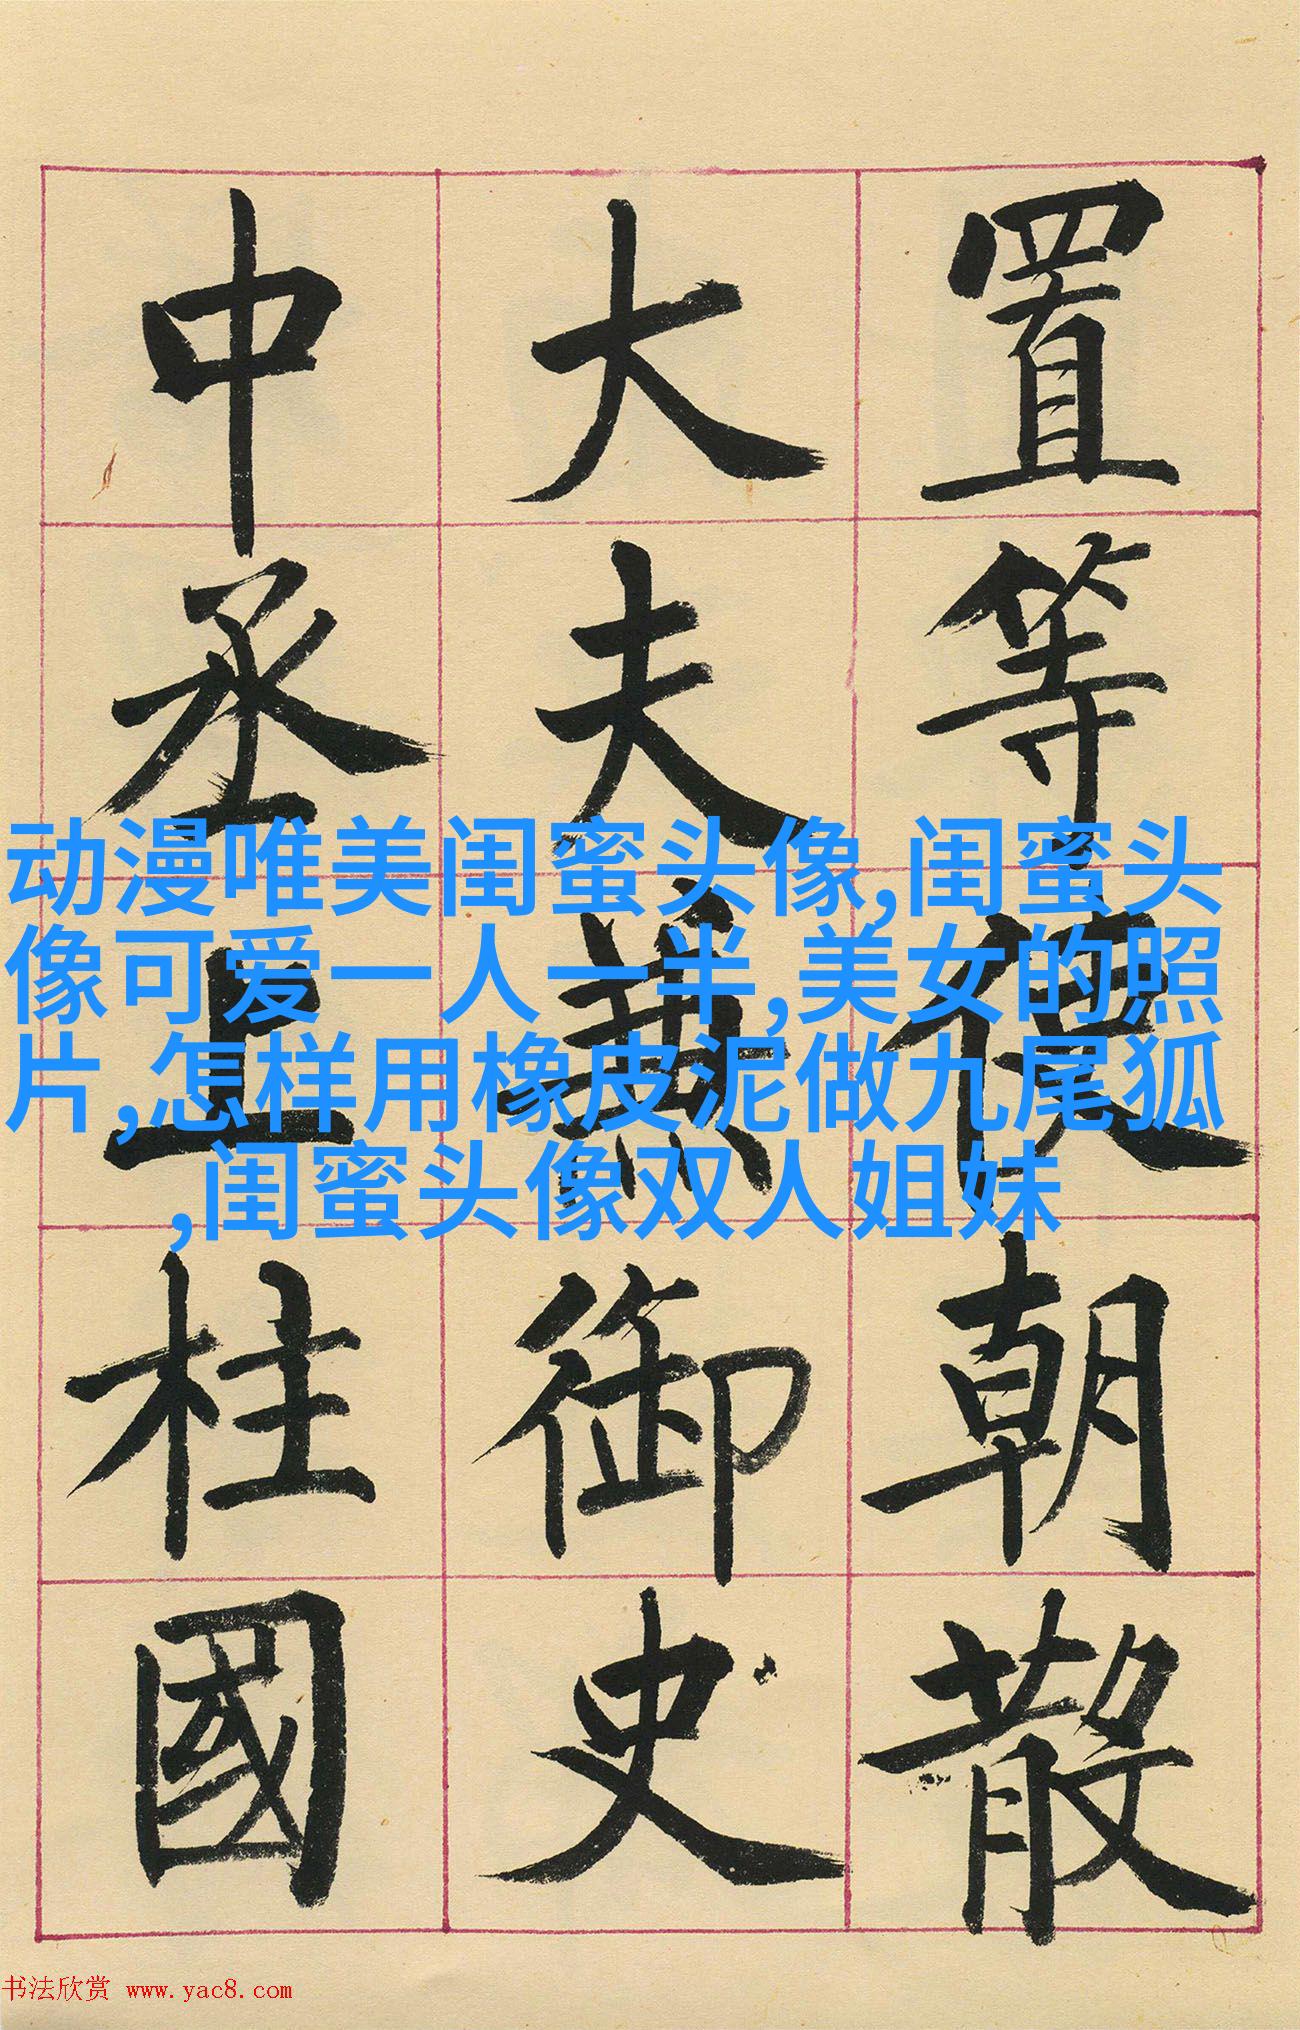 置等使朝散
大夫兼御史
中丞上柱國
动漫唯美闺蜜头像,闺蜜头
像可爱一人一半,美女的照
片,怎样用橡皮泥做九尾狐
,闺蜜头像双人姐妹
书法欣赏 www.yac8.com